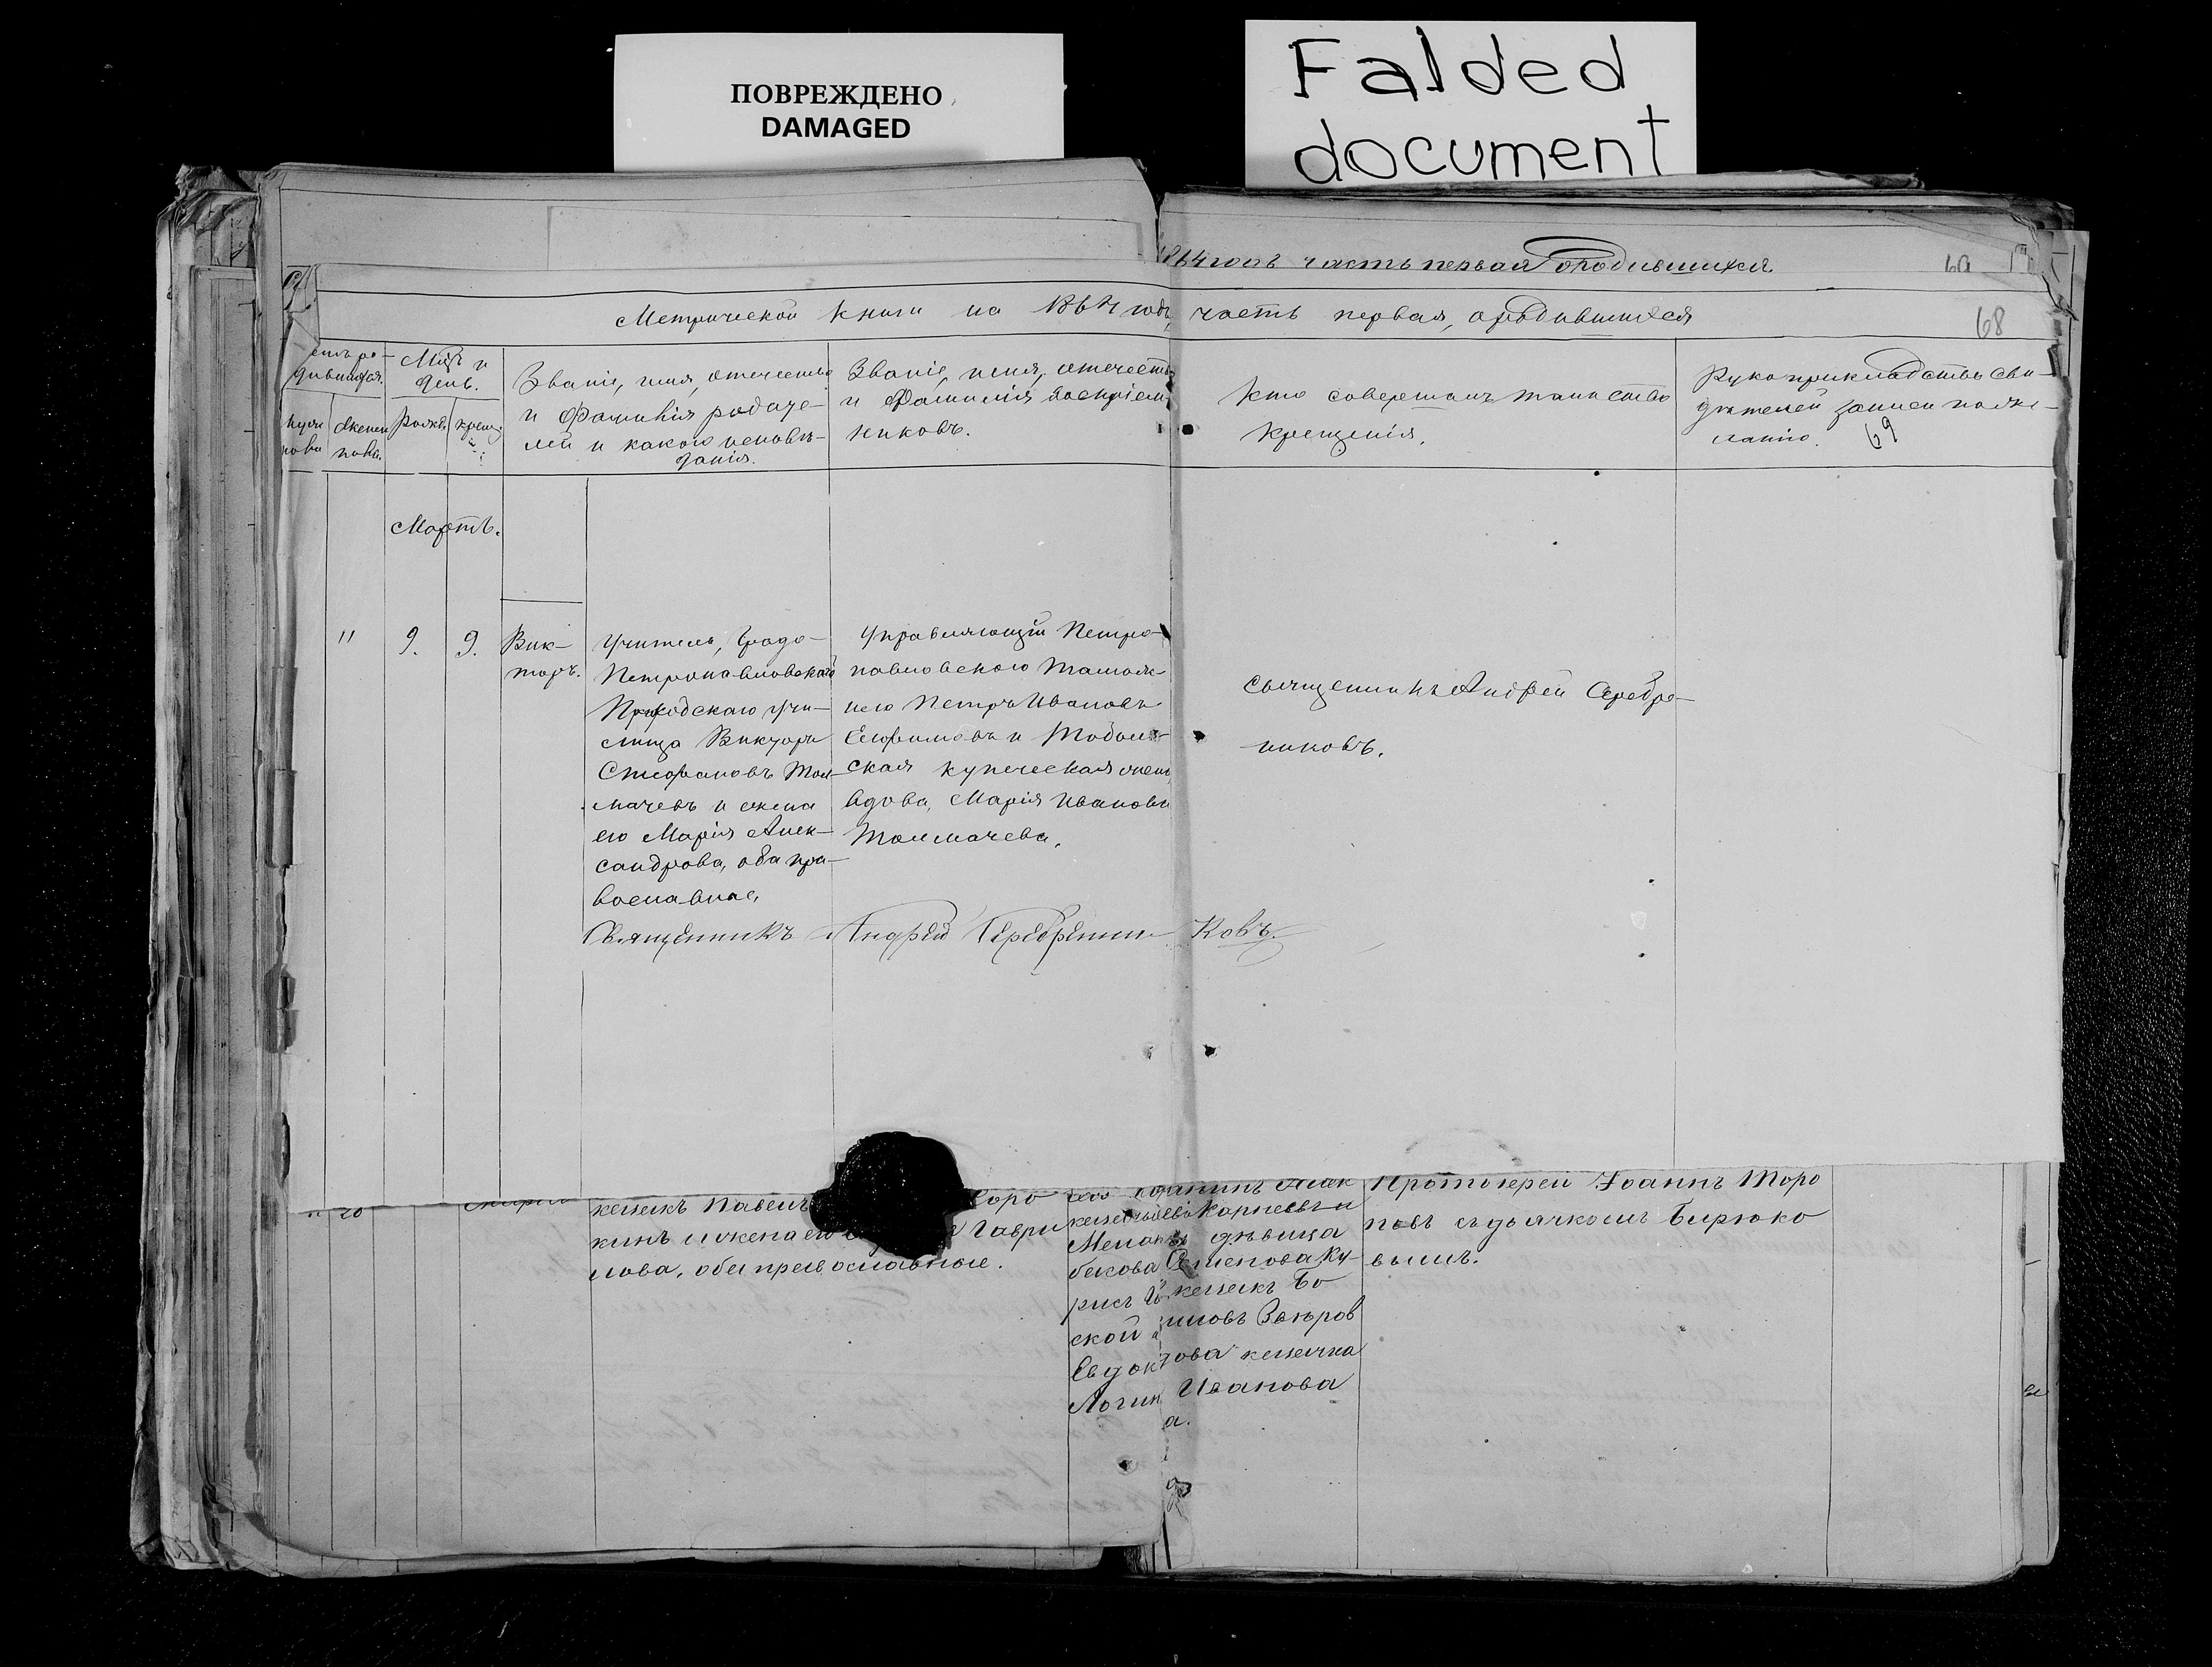 ПОВРЕЖДЕНО
DAMAGED
Falded
document
часть первая о родившихся
Метрической книги на 1864 годъ, часть первая, о родившихся
68
дившихся.
Мѣс. и
день.
Званіе, имя, отечество
и фамилія родите-
лей и какого исповѣ-
данія.
Званіе, имя, отечество
и фамилія воспріем-
никовъ.
Кто совершалъ таинство
крещенія.
Рукоприкладство сви-
дѣтелей записи по же-
ланію. 69
Мартъ.
" 9. 9.
Вик-
торъ.
Учитель, Градо-
Петропавловскаго
Приходскаго учи-
лища Викторъ
Стефановъ Тол-
мачевъ и жена
его Марія Алек-
сандрова, оба пра-
вославные,
Управляющій Петро-
павловскою Тамож-
нею Петръ Ивановъ
Ефимовъ и Тоболь-
ская купеческая
вдова, Марія Иванова
Толмачева.
Священникъ Андрей Серебре-
никовъ.
Священникъ Андрей Серебренни ковъ.
20
Павелъ
кинъ и жена его Гаври
лова, оба православные.
Корнеевъ и
дѣвица
Семенова Ку-
Бо
рисъ
ской
Евдок
Логин
Иванова
а.
Протоіерей Іоаннъ Торо
повъ съ дьячкомъ Бирюко
вымъ.